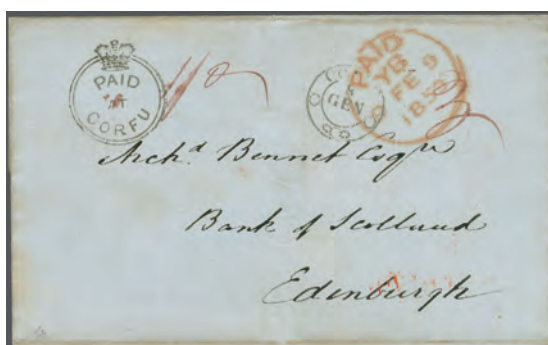 PAID
AT
CORFU
GEN
PAID
YB
FE 9
Archd. Bennet Esqre
Bank of Scotland
Edinburgh